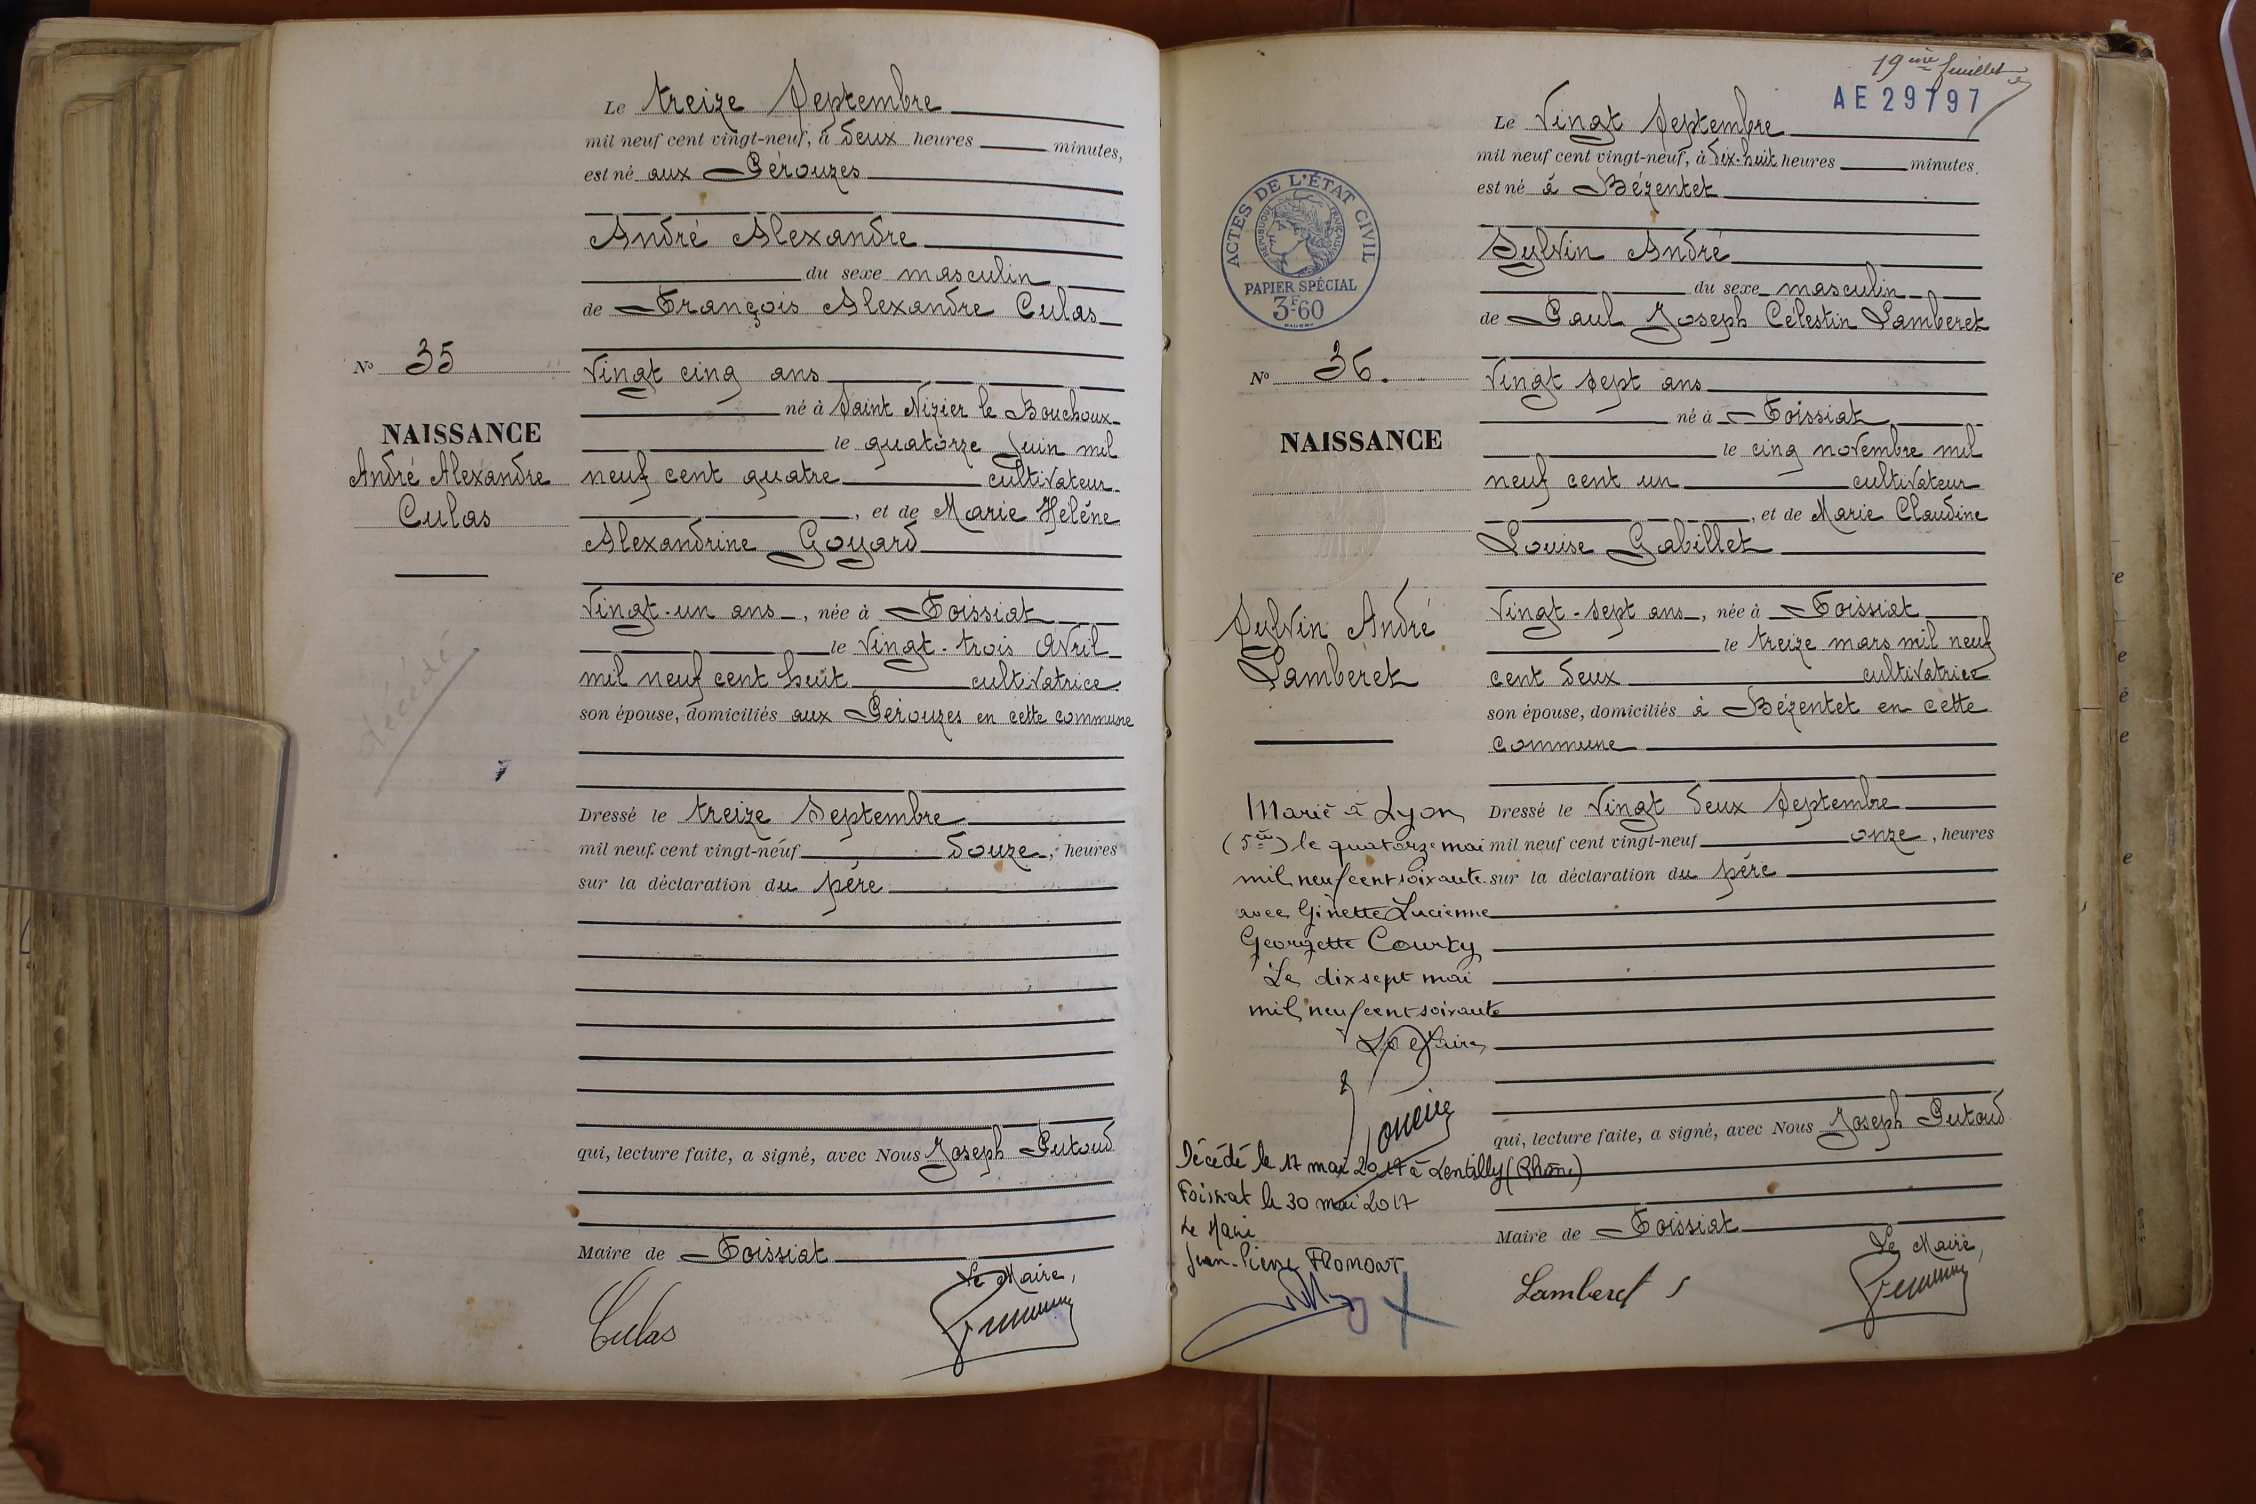 Le treize Septembre
mil neuf cent vingt-neuf, à deux heures minutes,
est né aux Pérouzes
André Alexandre
du sexe masculin
de François Alexandre Culas
Vingt cinq ans
né à Saint Nizier le Bouchoux
le quatorze Juin mil
neuf cent quatre cultivateur
, et de Marie Hélène
Alexandrine Goyard
Vingt-un ans, née à Foissiat
le Vingt-trois Avril
mil neuf cent huit cultivatrice
son épouse, domiciliés aux Pérouzes en cette commune
Dressé le treize Septembre
mil neuf cent vingt-neuf douze, heures
sur la déclaration du père
qui, lecture faite, a signé, avec Nous Joseph Putoud
Maire de Foissiat
Le Maire,
Culas
No 35
NAISSANCE
André Alexandre
Culas
décédé
19ème feuillet
AE29797
Le Vingt Septembre
mil neuf cent vingt-neuf, à dix-huit heures minutes.
est né à Bézentet
Sylvin André
du sexe masculin
de Paul Joseph Célestin Lamberet
Vingt sept ans
né à Foissiat
le cinq novembre mil
neuf cent un cultivateur
, et de Marie Claudine
Louise Gabillet
Vingt-sept ans, née à Foissiat
le treize mars mil neuf
cent deux cultivatrice
son épouse, domiciliés à Bézentet en cette
commune
Dressé le Vingt deux Septembre
mil neuf cent vingt-neuf onze, heures
sur la déclaration du père
qui, lecture faite, a signé, avec Nous Joseph Putoud
Maire de Foissiat
Le Maire,
Lamberet S
ACTES DE L'ÉTAT CIVIL
RÉPUBLIQUE FRANÇAISE
PAPIER SPÉCIAL
3F60
No 36.
NAISSANCE
Sylvin André
Lamberet
Marié à Lyon
(5me) le quatorze mai
mil neuf cent soixante
avec Ginette Lucienne
Georgette Courty
Le dix sept mai
mil neuf cent soixante
Le Maire
Décédé le 17 mai 2017 à Lentilly (Rhône)
Foissiat le 30 mai 2017
Le Maire
Jean-Pierre FROMONT